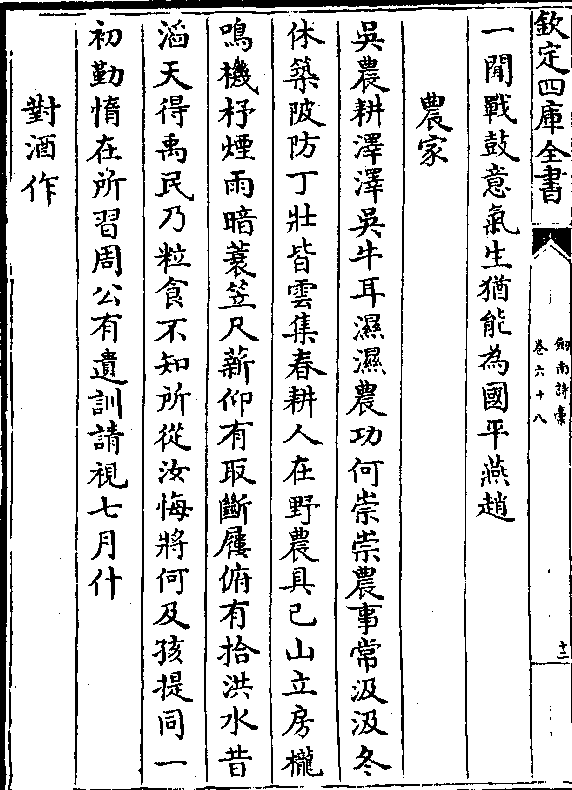 欽定四庫全書
劍南詩稾
卷六十八
十二
一聞戰鼓意氣生猶能為國平燕趙
農家
吳農耕澤澤吳牛耳濕濕農功何崇崇農事常汲汲冬
休築陂防丁壯皆雲集春耕人在野農具已山立房櫳
鳴機杼煙雨暗蓑笠尺薪仰有取斷屨俯有拾洪水昔
滔天得禹民乃粒食不知所從汝悔將何及孩提同一
初勤惰在所習周公有遺訓請視七月什
對酒作